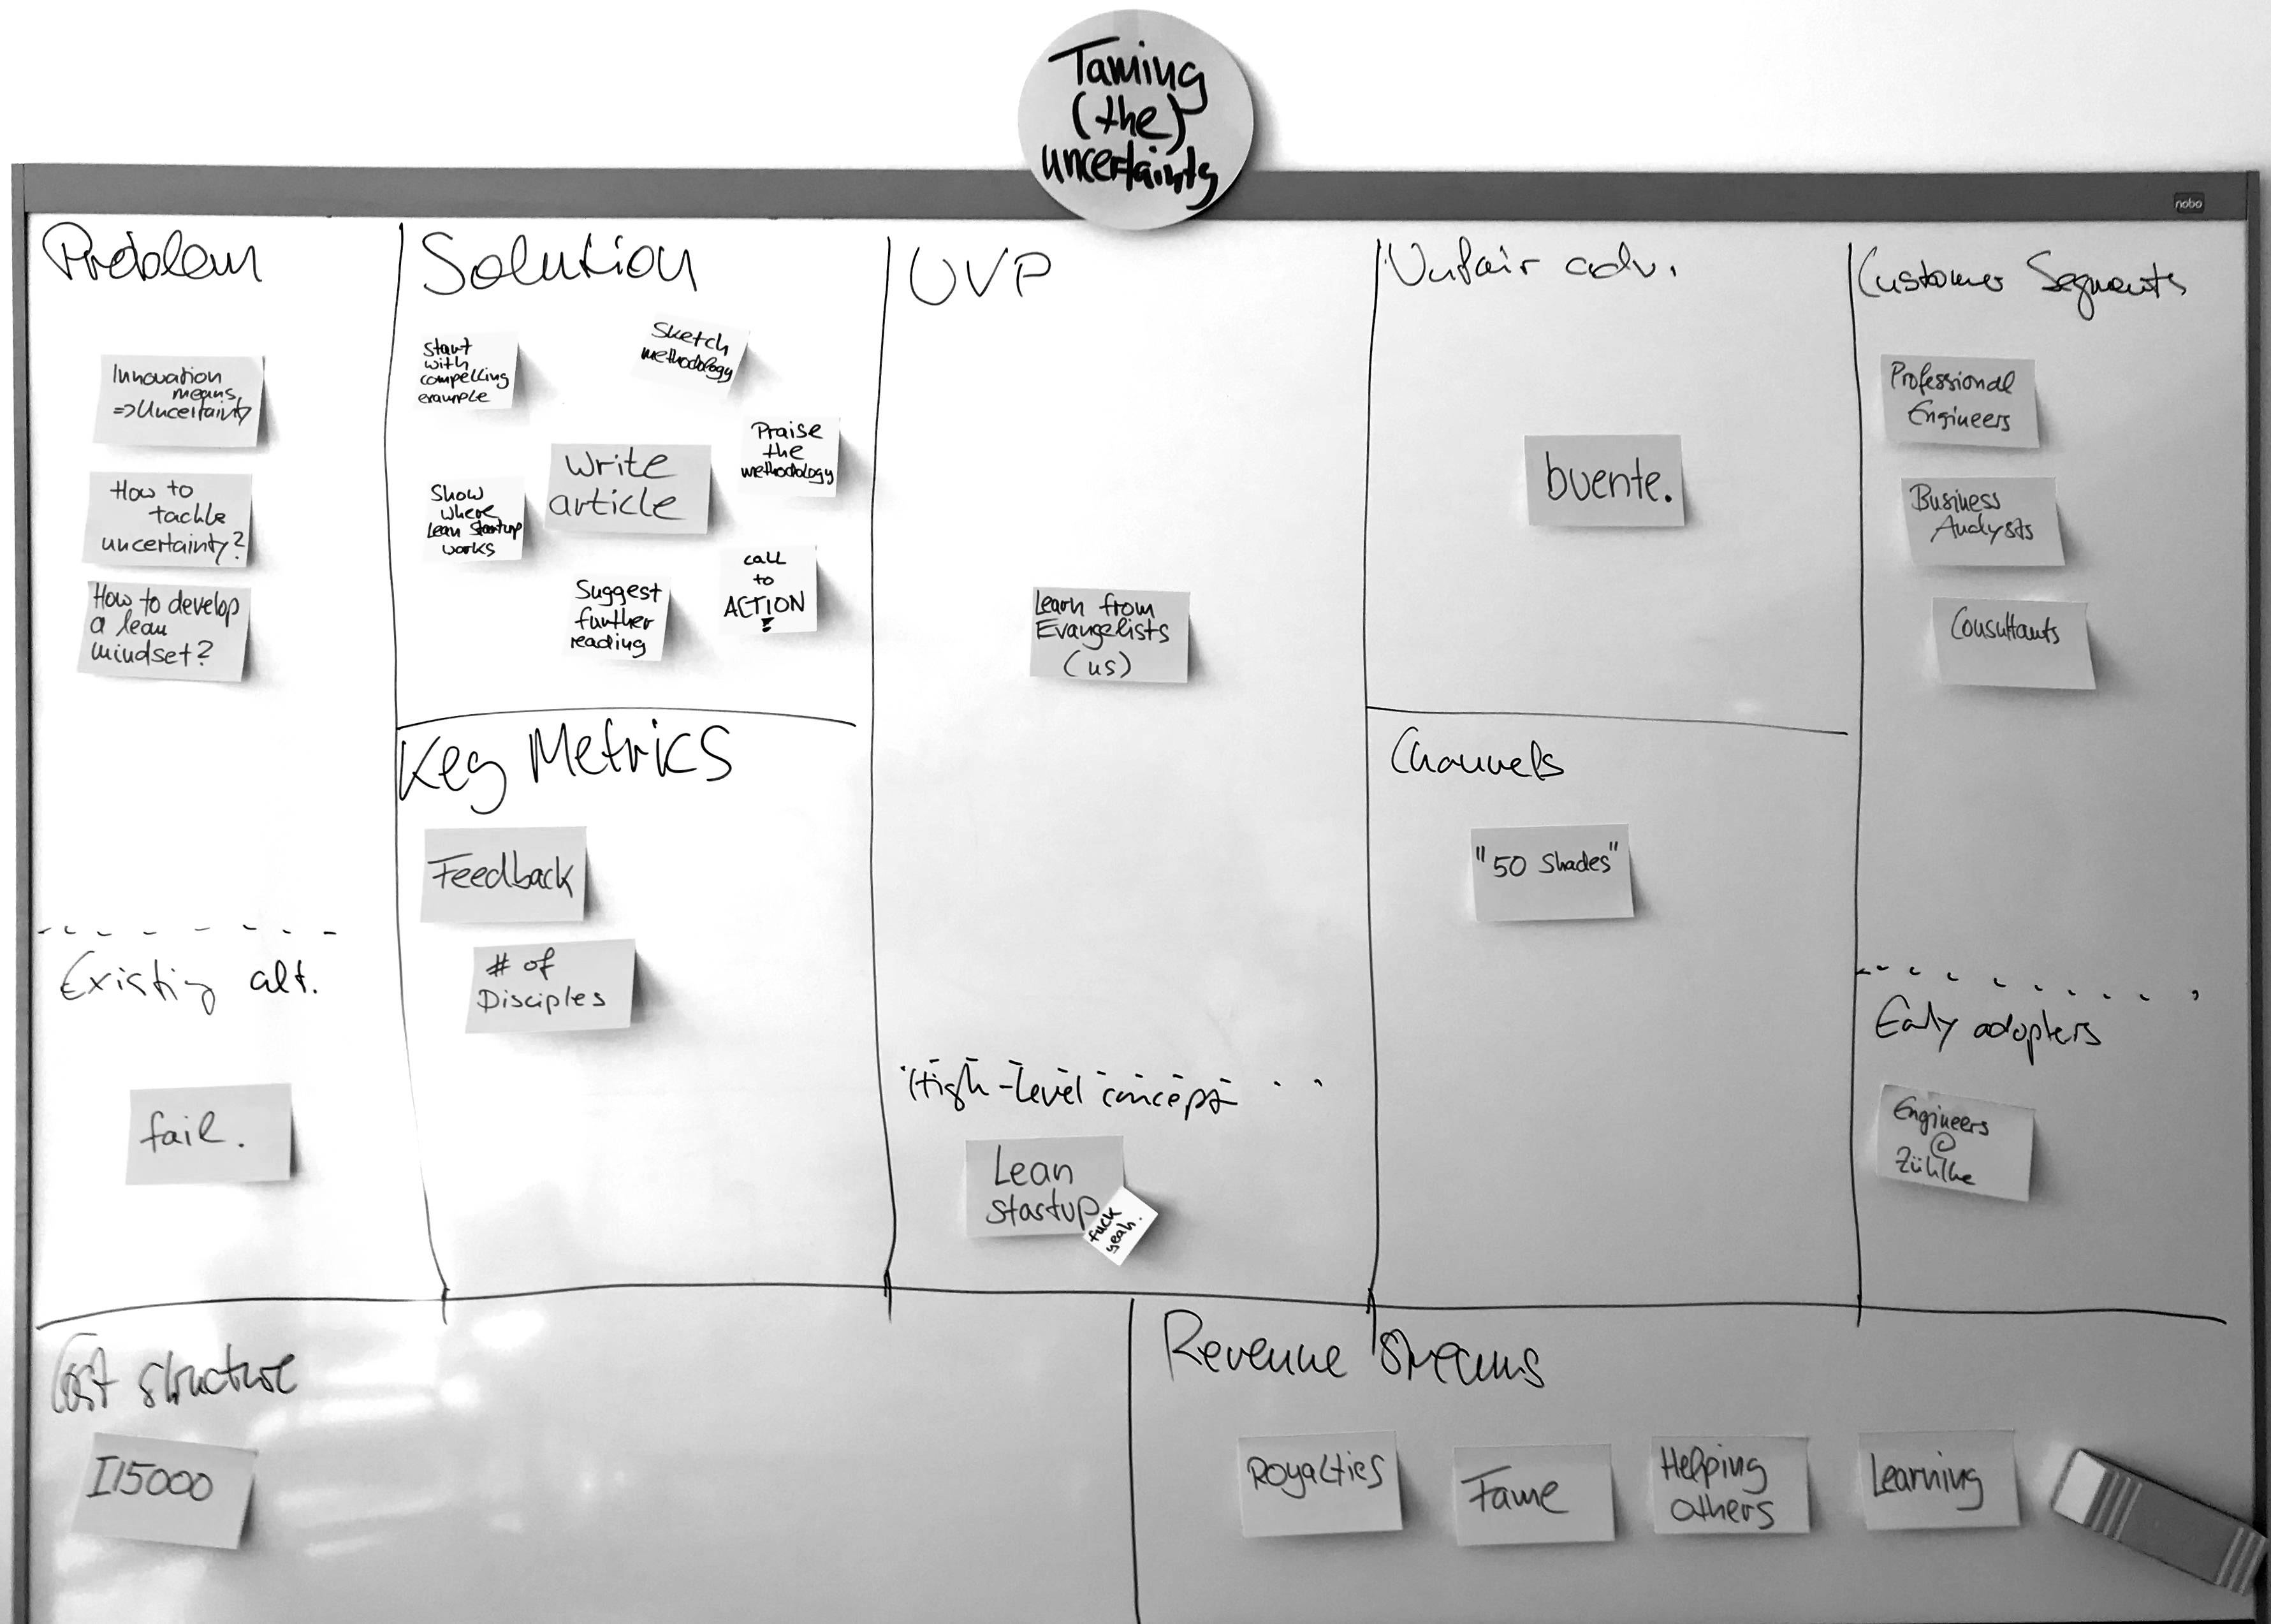 Taming
(the)
uncertainty
nobo
Problem
Innovation
means
=> Uncertainty
How to
tackle
uncertainty?
How to develop
a lean
mindset?
Existing alt.
fail.
Solution
Start
with
compelling
example
Sketch
methodology
Praise
the
methodology
Write
article
Show
where
Lean Startup
works
Suggest
further
reading
call
to
ACTION!
Key Metrics
Feedback
# of
Disciples
UVP
Learn from
Evangelists
(us)
High-Level concept
Lean
startup
fuck
yeah.
Unfair adv.
buente.
Channels
"50 Shades"
Customer Segments
Professional
Engineers
Business
Analysts
Consultants
Early adopters
Engineers
@
Zühlke
Cost structure
I15000
Revenue Streams
Royalties
Fame
Helping
others
Learning